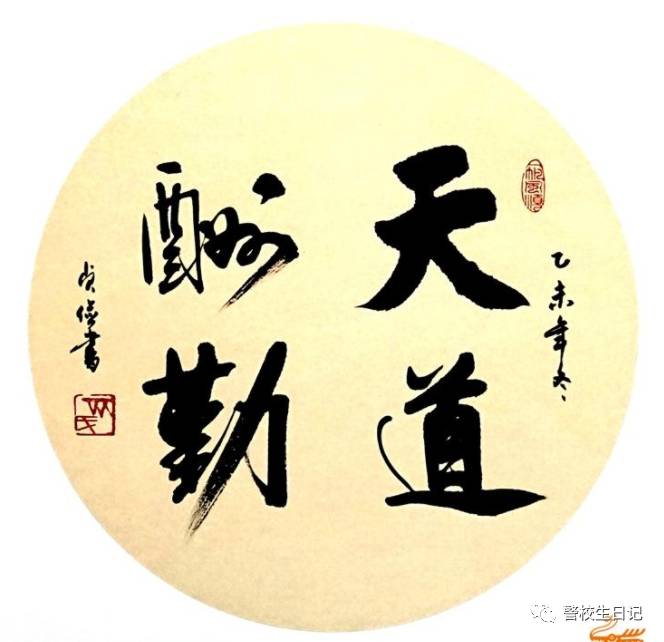 乙未年冬
天道
酬勤
書
警校生日记